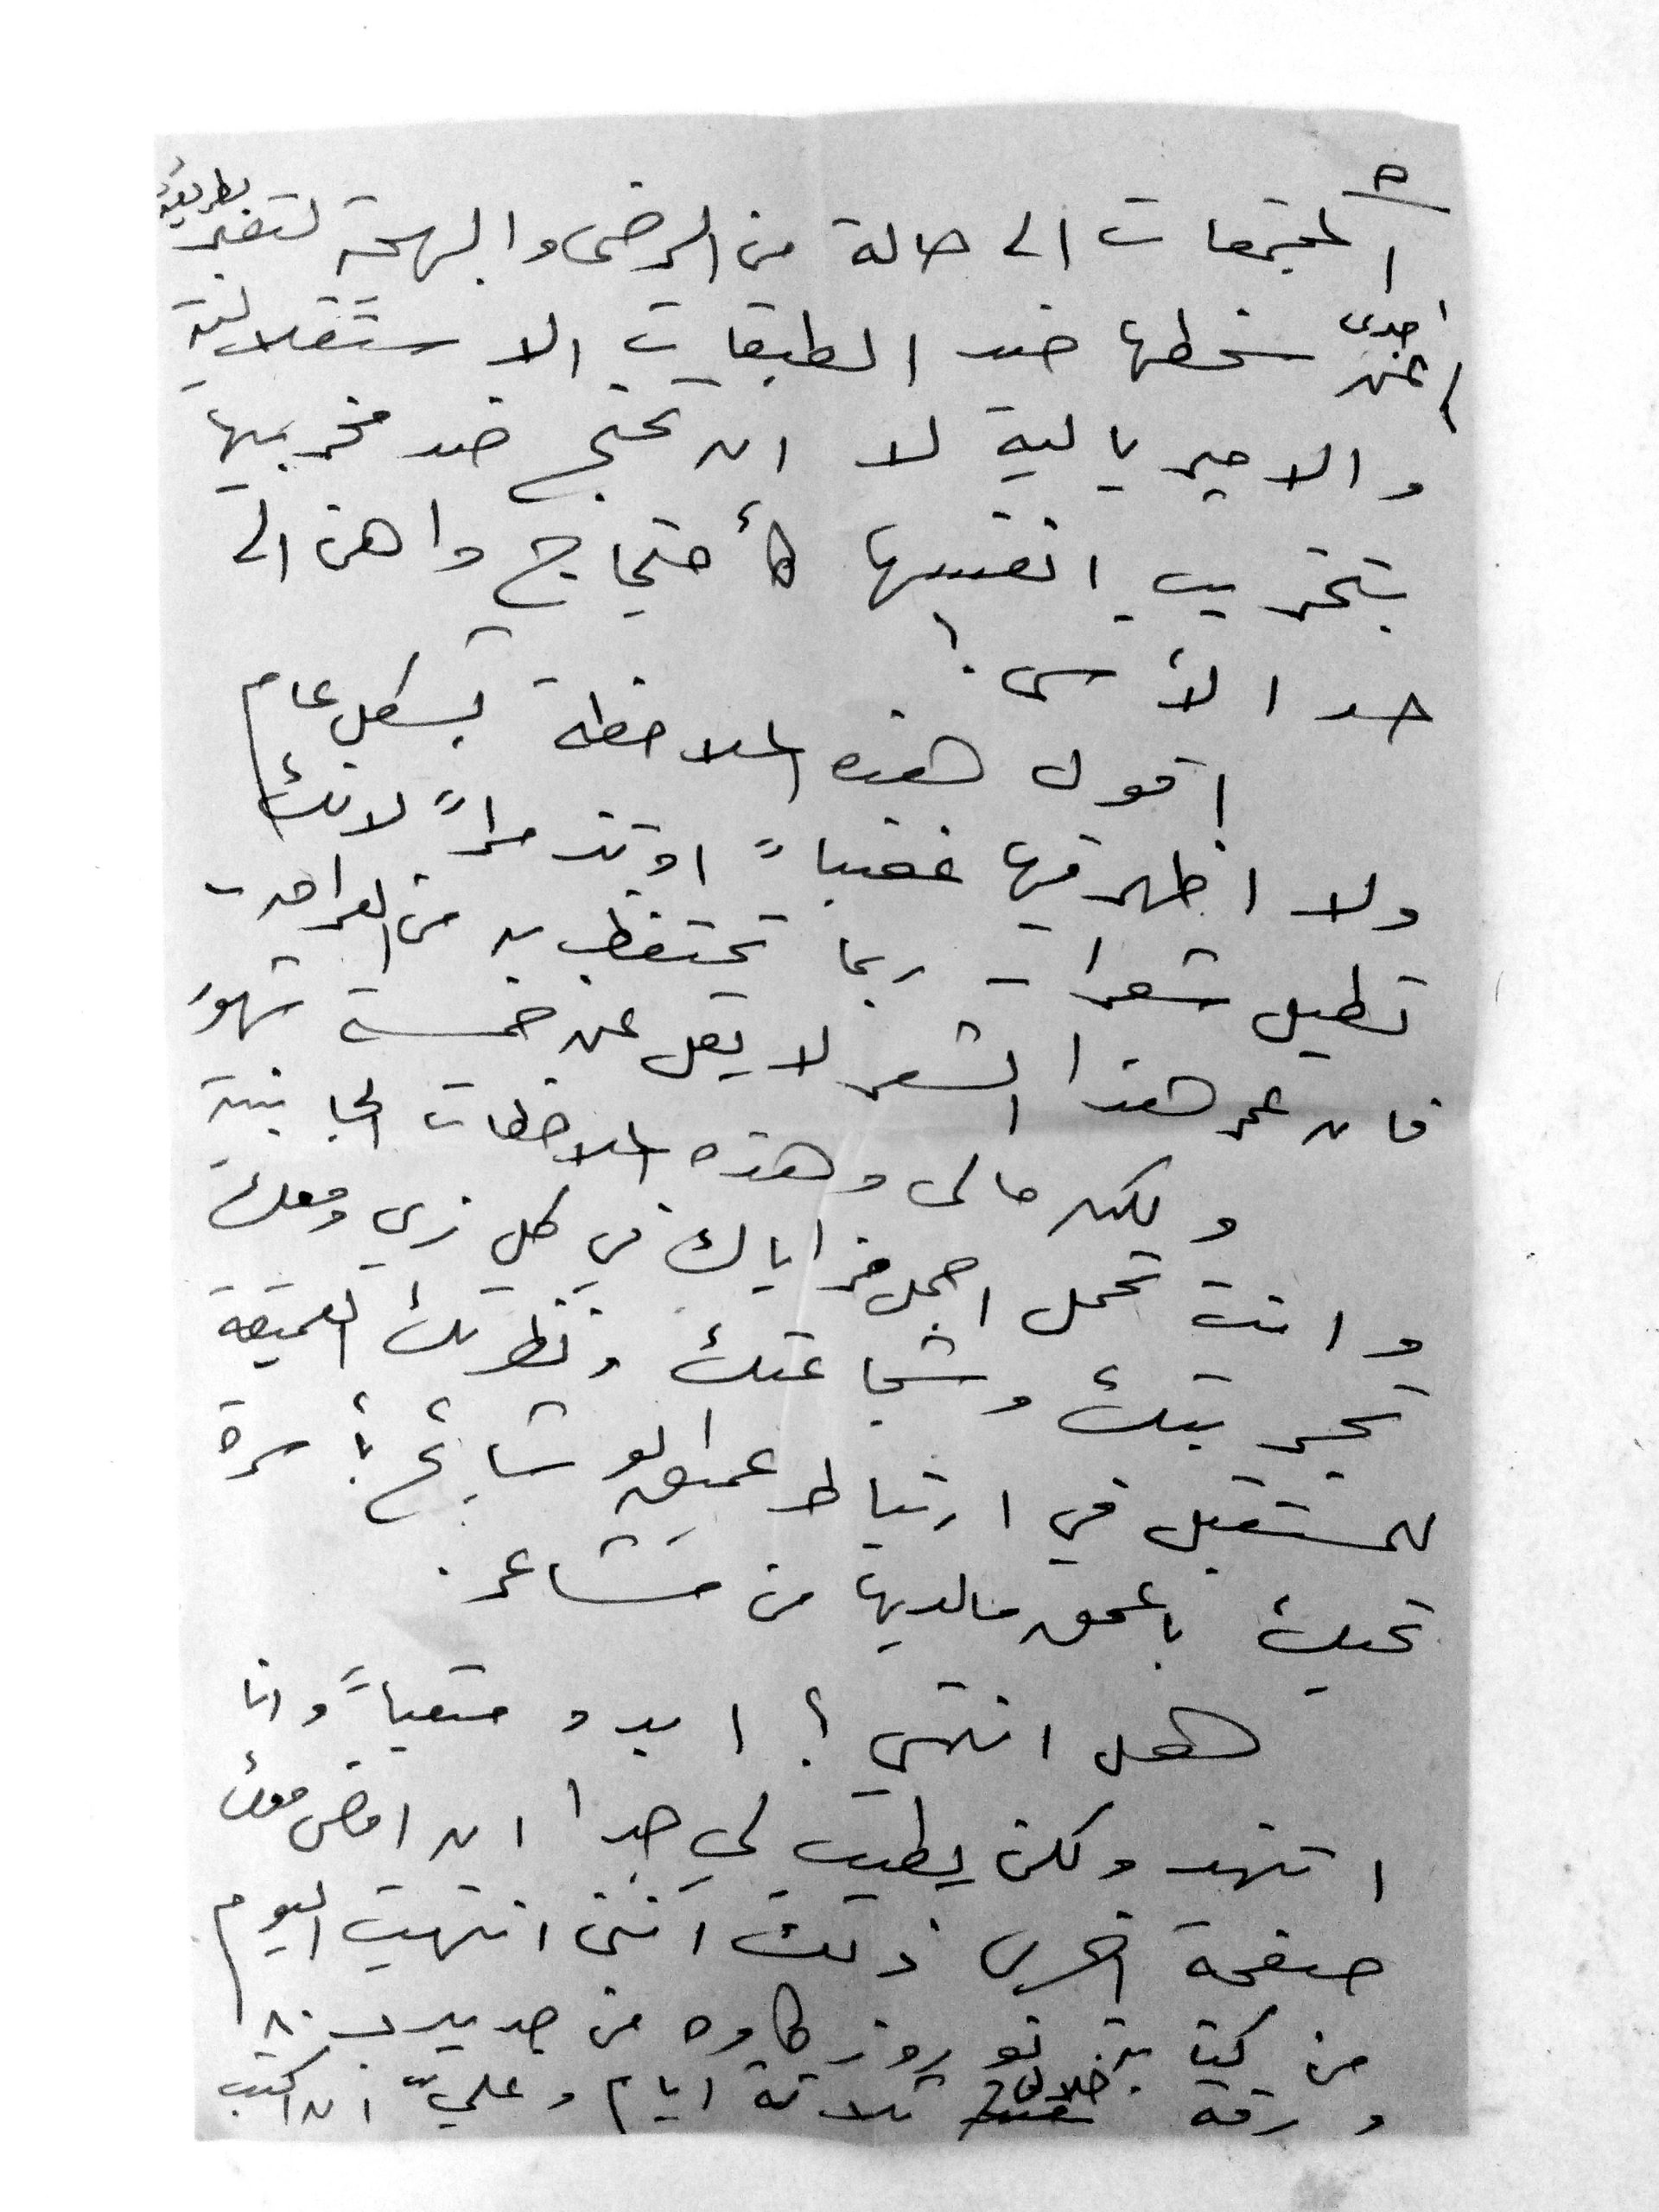 ٥
المجتمعات الى حالة من الرضى والبهجة لتغير بطريقة
اجدى عن سخطها ضد الطبقات الاستقلالية
والامبريالية لا ان تحتج ضد مخربيها
بتخريب انفسها كأحتجاج واهن الى
حد الأسى !
اقول هذه الملاحظة بشكل عام
ولا اظهر فيها غضباً او تذمراً لانك
تطيل شعرات ربما تحتفظ به من
فان عمر هذا الشعر لا يقل عن خمسة شهور
ولكن مالي وهذه الملاحظات الجانبية
وانت تحمل اجمل مزاياك في كل زي ومعك
تجربتك وشجاعتك ونظرتك العميقة
للمستقبل في ارتباط عميق الوشائج بأسرة
تحبك باعمق مالديها من مشاعر .
هل انتهي ؟ ابدو متعباً وانا
اتنهد ولكن يطيب لي جدا ان امضي معك
صفحة اخرى ذلك انني انتهيت اليوم
من كتابة نوروز كاوه من جديد ب ٨٠
ورقة خلال ثلاثة ايام وعليّ ان اكتب